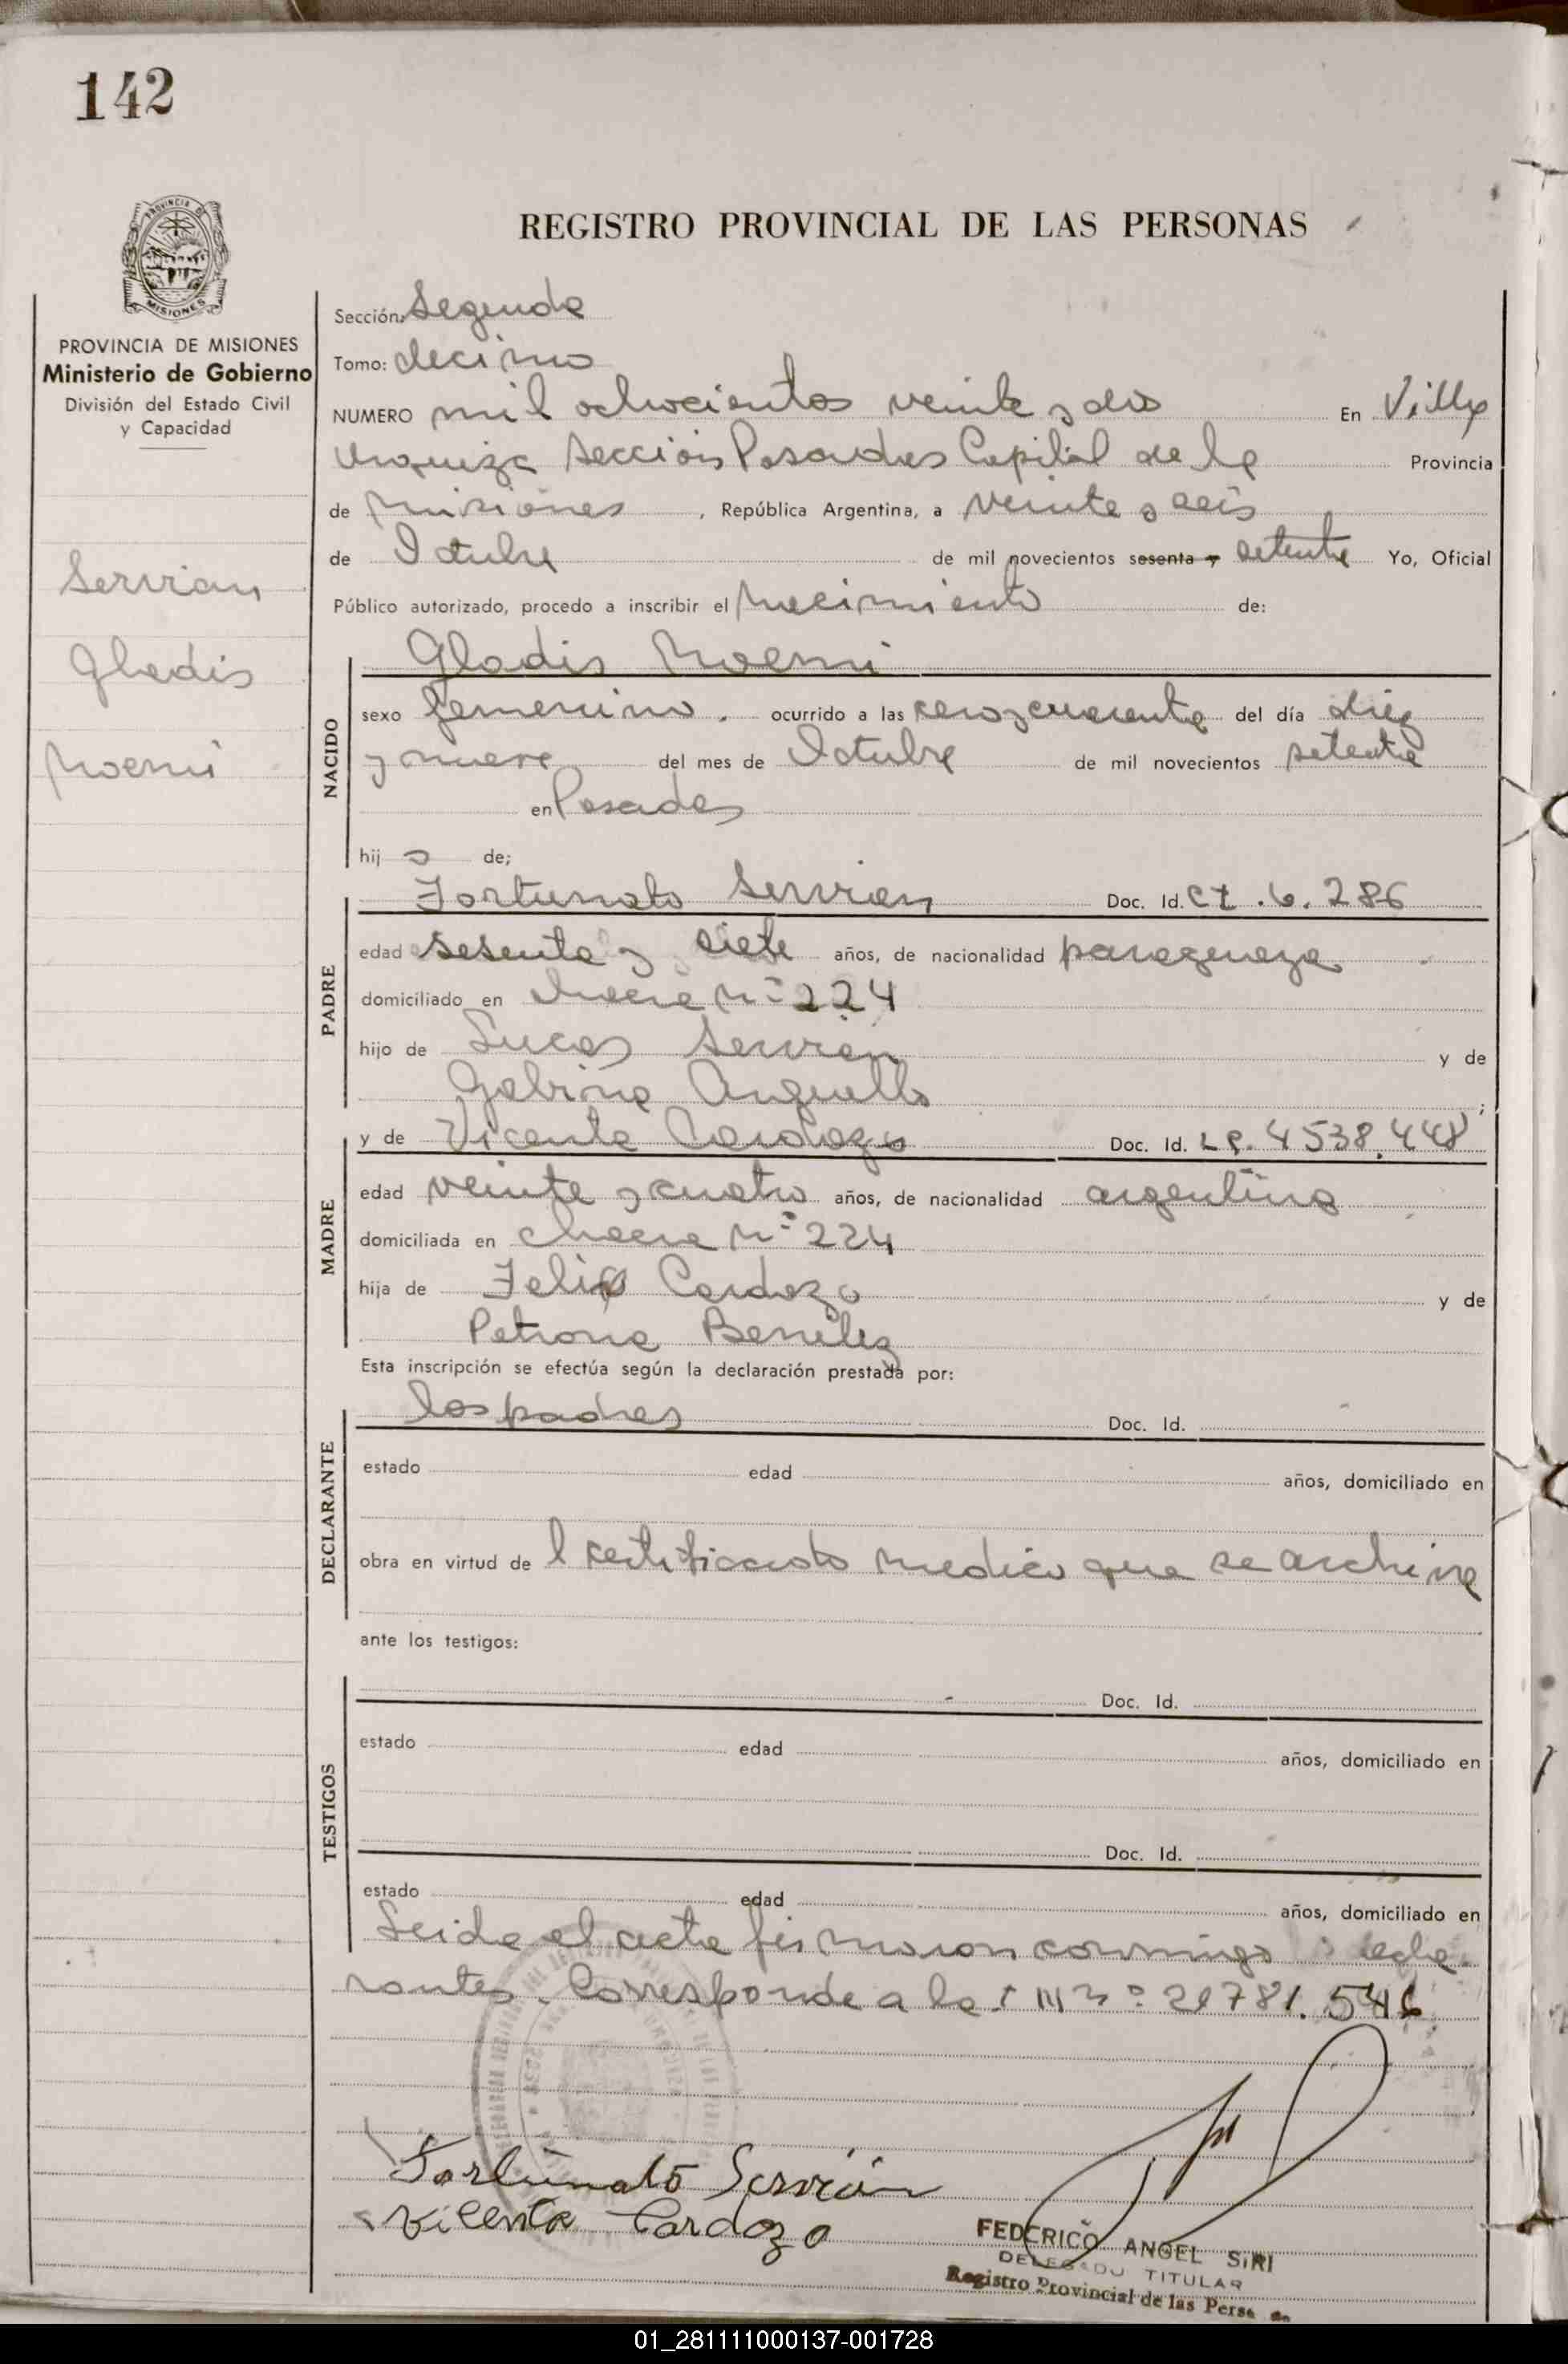 142
PROVINCIA DE MISIONES
REGISTRO PROVINCIAL DE LAS PERSONAS
PROVINCIA DE MISIONES
Ministerio de Gobierno
División del Estado Civil
y Capacidad
Servian
Gladis
Noemi
Sección: Segunda
Tomo: decimo
NUMERO mil ochocientos veinte y dos En Villa
Urquiza Sección Posadas Capital de la Provincia
de Misiones , República Argentina, a veinte y seis
de Octubre de mil novecientos sesenta y setenta Yo, Oficial
Público autorizado, procedo a inscribir el nacimiento de:
Gladis Noemi
NACIDO
sexo femenino. ocurrido a las cero y cuarenta del día diez
y nueve del mes de Octubre de mil novecientos setenta
en Posadas
hij a de;
Fortunato Servian Doc. Id. CI .6. 286
PADRE
edad sesenta y siete años, de nacionalidad paraguaya
domiciliado en chacra Nº 224
hijo de Lucas Servian y de
Gabina Arguello ;
y de Vicenta Cardozo Doc. Id. LC. 4538.448
MADRE
edad veinte y cuatro años, de nacionalidad argentina
domiciliada en chacra Nº 224
hija de Felix Cardozo y de
Petrona Benitez
Esta inscripción se efectúa según la declaración prestada por:
los padres Doc. Id.
DECLARANTE
estado edad años, domiciliado en
obra en virtud de l certificado medico que se archiva
ante los testigos:
Doc. Id.
TESTIGOS
estado edad años, domiciliado en
Doc. Id.
estado edad años, domiciliado en
Leida el acta firmaron conmigo decla
rantes. Corresponde a la nº 21781.546
Fortunato Servián
Vicenta Cardozo
FEDERICO ANGEL SIRI
DELEGADO TITULAR
Registro Provincial de las Perso
01_281111000137-001728